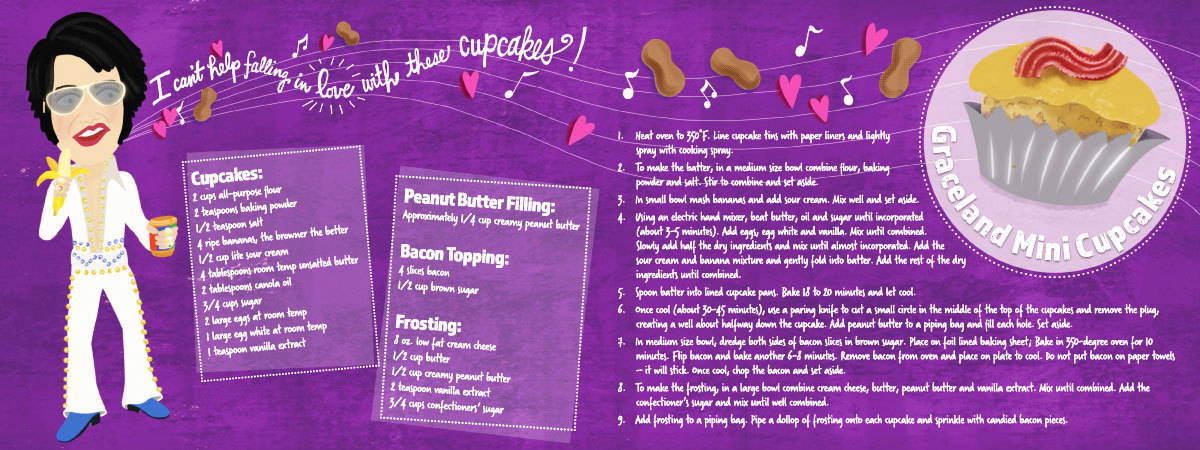 I can't help falling in love with these cupcakes!
Cupcakes:
2 cups all-purpose flour
2 teaspoons baking powder
1/2 teaspoon salt
4 ripe bananas, the browner the better
1/2 cup lite sour cream
4 tablespoons room temp unsalted butter
2 tablespoons canola oil
3/4 cups sugar
2 large eggs at room temp
1 large egg white at room temp
1 teaspoon vanilla extract
Peanut Butter Filling:
Approximately 1/4 cup creamy peanut butter
Bacon Topping:
4 slices bacon
1/2 cup brown sugar
Frosting:
8 oz. low fat cream cheese
1/2 cup butter
1/2 cup creamy peanut butter
2 teaspoon vanilla extract
3/4 cups confectioners' sugar
1. Heat oven to 350°F. Line cupcake tins with paper liners and lightly
spray with cooking spray.
2. To make the batter, in a medium size bowl combine flour, baking
powder and salt. Stir to combine and set aside.
3. In small bowl mash bananas and add sour cream. Mix well and set aside.
4. Using an electric hand mixer, beat butter, oil and sugar until incorporated
(about 3-5 minutes). Add eggs, egg white and vanilla. Mix until combined.
Slowly add half the dry ingredients and mix until almost incorporated. Add the
sour cream and banana mixture and gently fold into batter. Add the rest of the dry
ingredients until combined.
5. Spoon batter into lined cupcake pans. Bake 18 to 20 minutes and let cool.
6. Once cool (about 30-45 minutes), use a paring knife to cut a small circle in the middle of the top of the cupcakes and remove the plug,
creating a well about halfway down the cupcake. Add peanut butter to a piping bag and fill each hole. Set aside.
7. In medium size bowl, dredge both sides of bacon slices in brown sugar. Place on foil lined baking sheet; Bake in 350-degree oven for 10
minutes. Flip bacon and bake another 6-8 minutes. Remove bacon from oven and place on plate to cool. Do not put bacon on paper towels
– it will stick. Once cool, chop the bacon and set aside.
8. To make the frosting, in a large bowl combine cream cheese, butter, peanut butter and vanilla extract. Mix until combined. Add the
confectioner's sugar and mix until well combined.
9. Add frosting to a piping bag. Pipe a dollop of frosting onto each cupcake and sprinkle with candied bacon pieces.
Graceland Mini Cupcakes